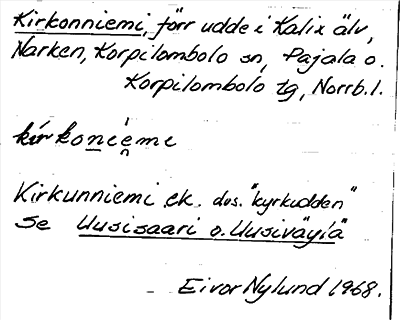 Kirkonniemi, förr udde i Kalix älv,
Narken, Korpilombolo sn, Pajala o.
Korpilombolo tg, Norrb. l.
kirkoniemi
Kirkunniemi ek. dvs. "kyrkudden"
Se Uusisaari o. Uusiväylä
Eivor Nylund 1968.